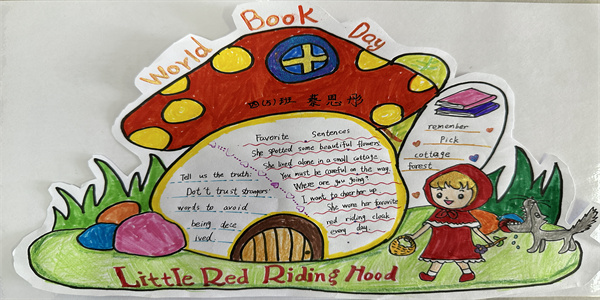 World Book Day
四(5)班 蔡思彤
Favorite Sentences
She spotted some beautiful flowers.
She lived alone in a small cottage.
You must be careful on the way.
Where are you going?
I want to cheer her up.
She wore her favorite
red riding cloak
every day.
Tell us the truth:
Dot't trust strangers
words to avoid
being dece
ived.
remember
Pick
cottage
forest
Little Red Riding Hood